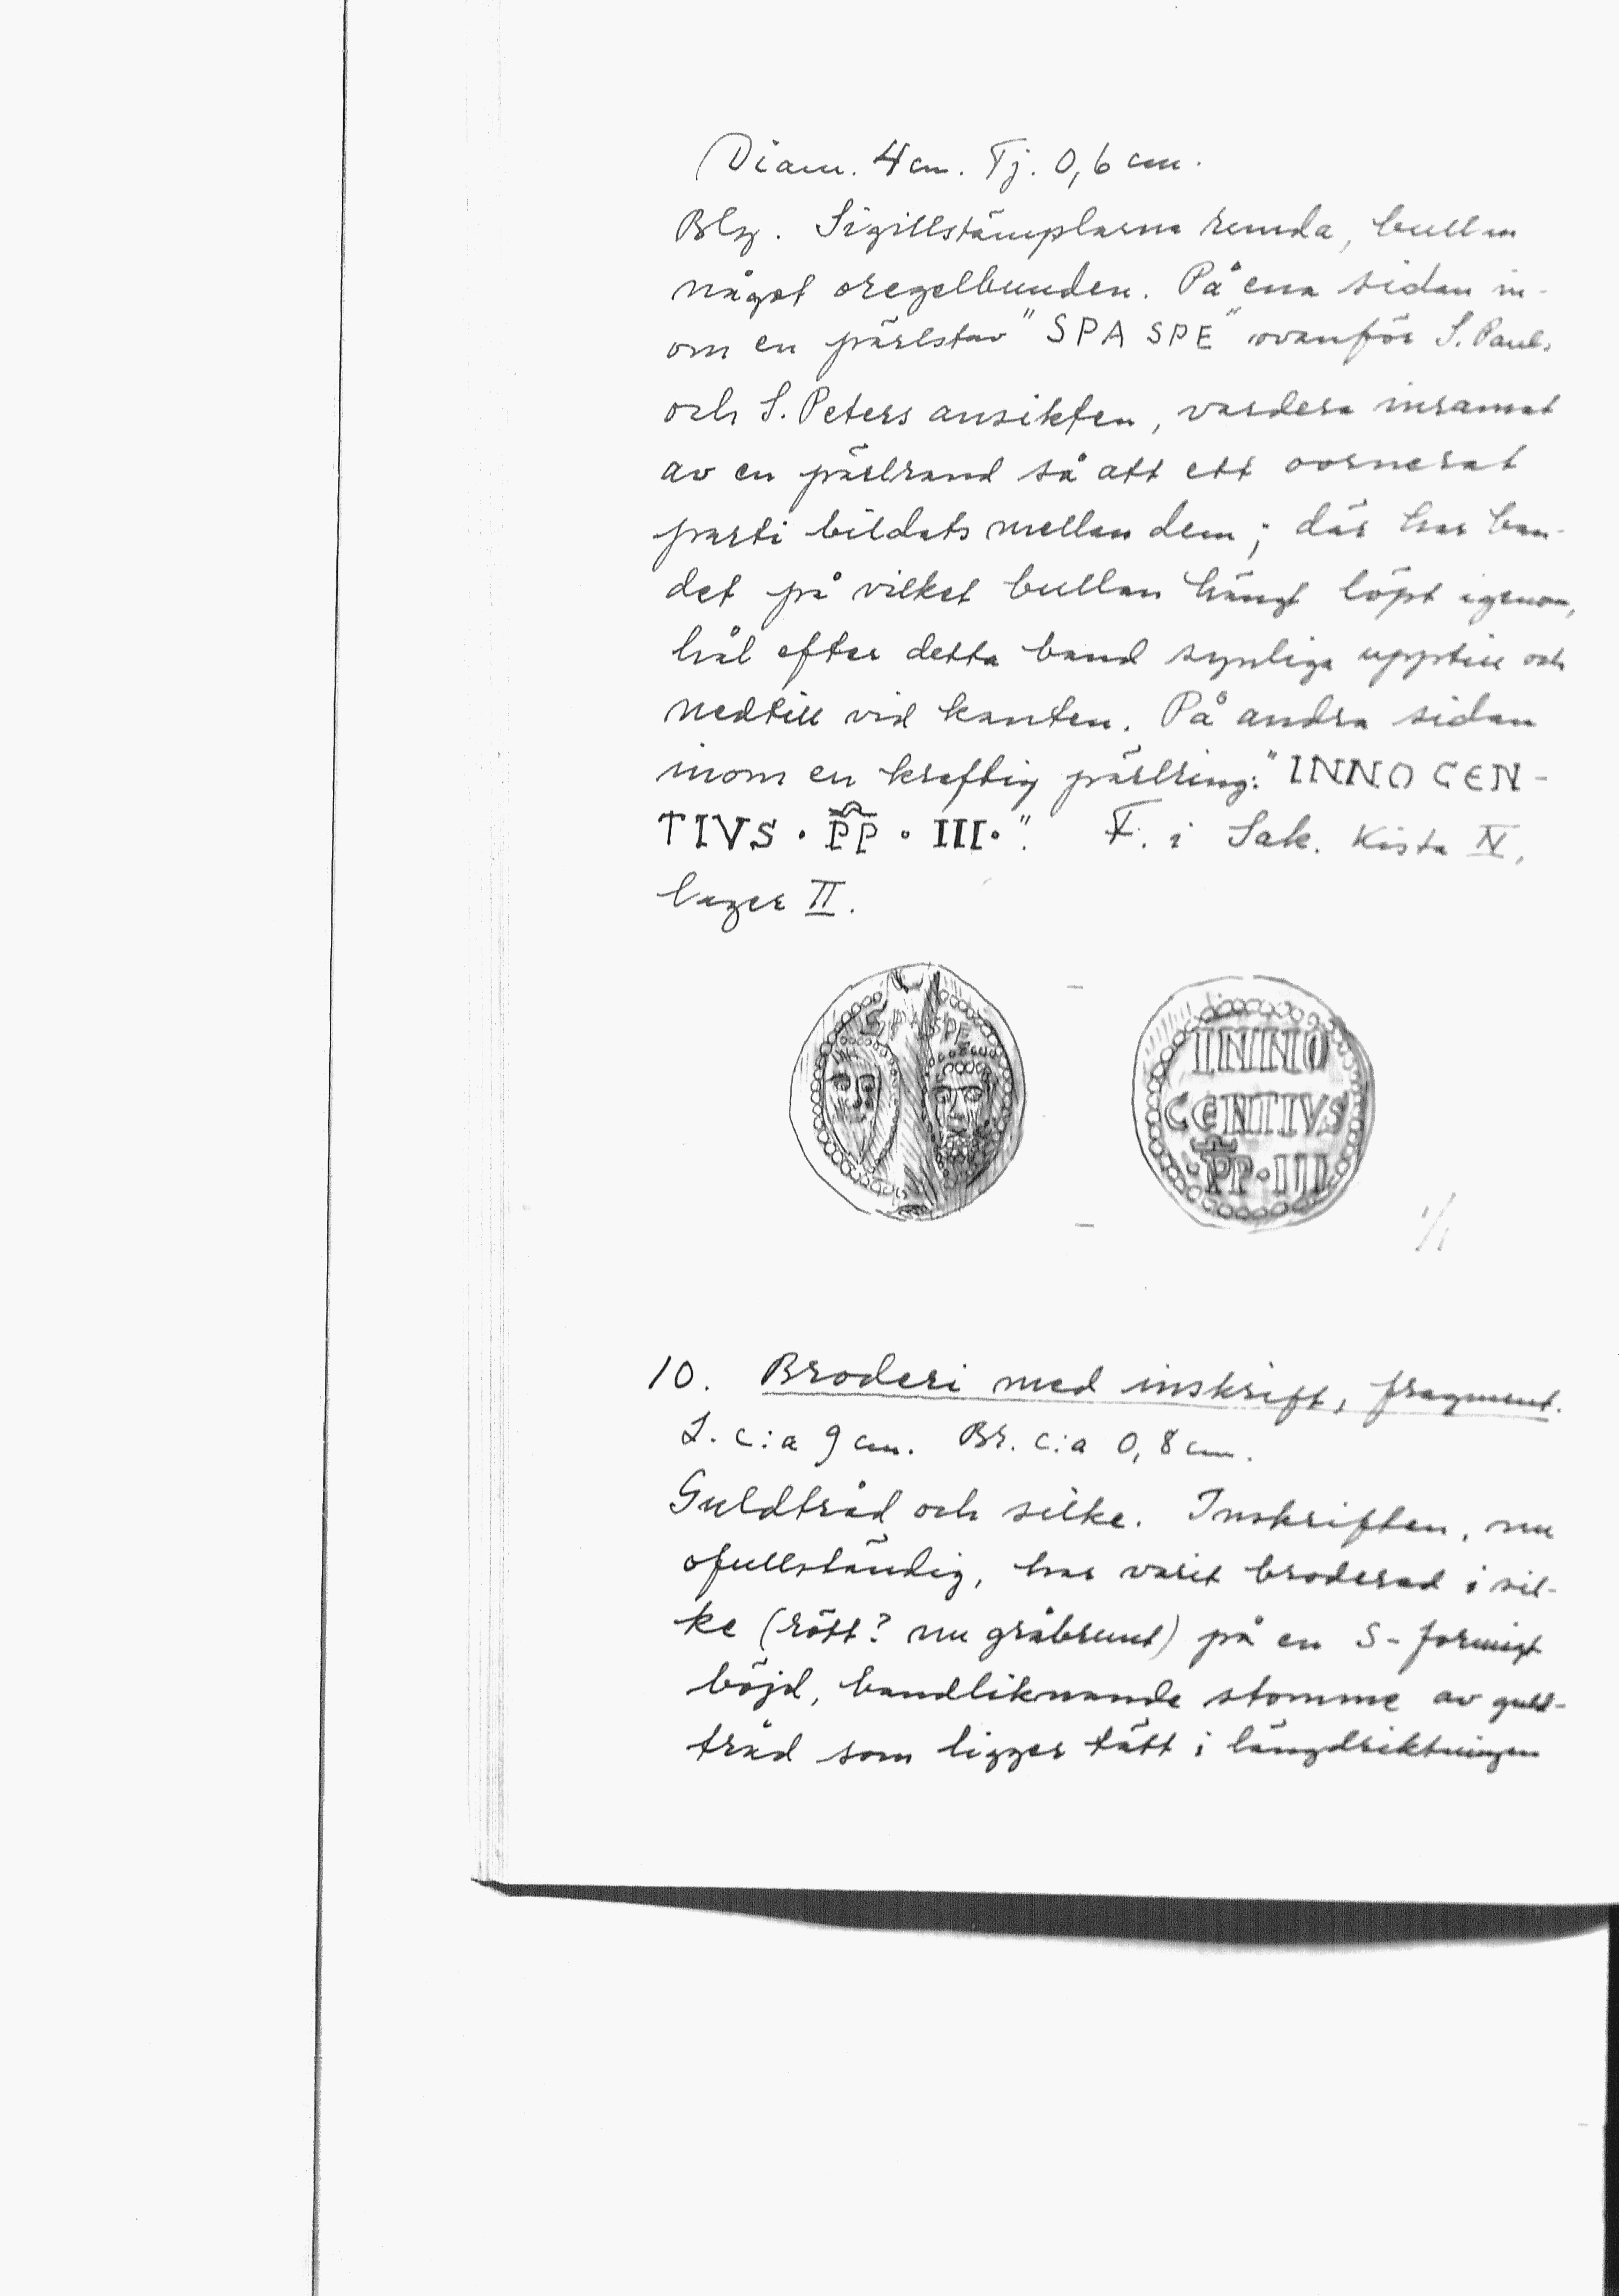 Diam. 4 cm. Tj. 0,6 cm.
Bly. Sigillstämplarna runda, bullan
något oregelbunden. På ena sidan in-
om en pärlstav "SPA SPE" ovanför S. Pauls
och S. Peters ansikten, vardera inramat
av en pärlrand så att ett oornerat
parti bildats mellan dem; där har ban-
det på vilket bullan hängt löpt igenom,
hål efter detta band synliga upptill och
nedtill vid kanten. På andra sidan
inom en kraftig pärlring: "INNOCEN-
TIVS · PP · III ·". F. i Sak. Kista IV,
lager II.
SPASPE
INNO
CENTIVS
·PP·III
1/1
10. Broderi med inskrift, fragment.
L. c:a 9 cm. Br. c:a 0,8 cm.
Guldtråd och silke. Inskriften, nu
ofullständig, har varit broderad i sil-
ke (rött? nu gråbrunt) på en S-formigt
böjd, bandliknande stomme av guld-
tråd som ligger tätt i längdriktningen